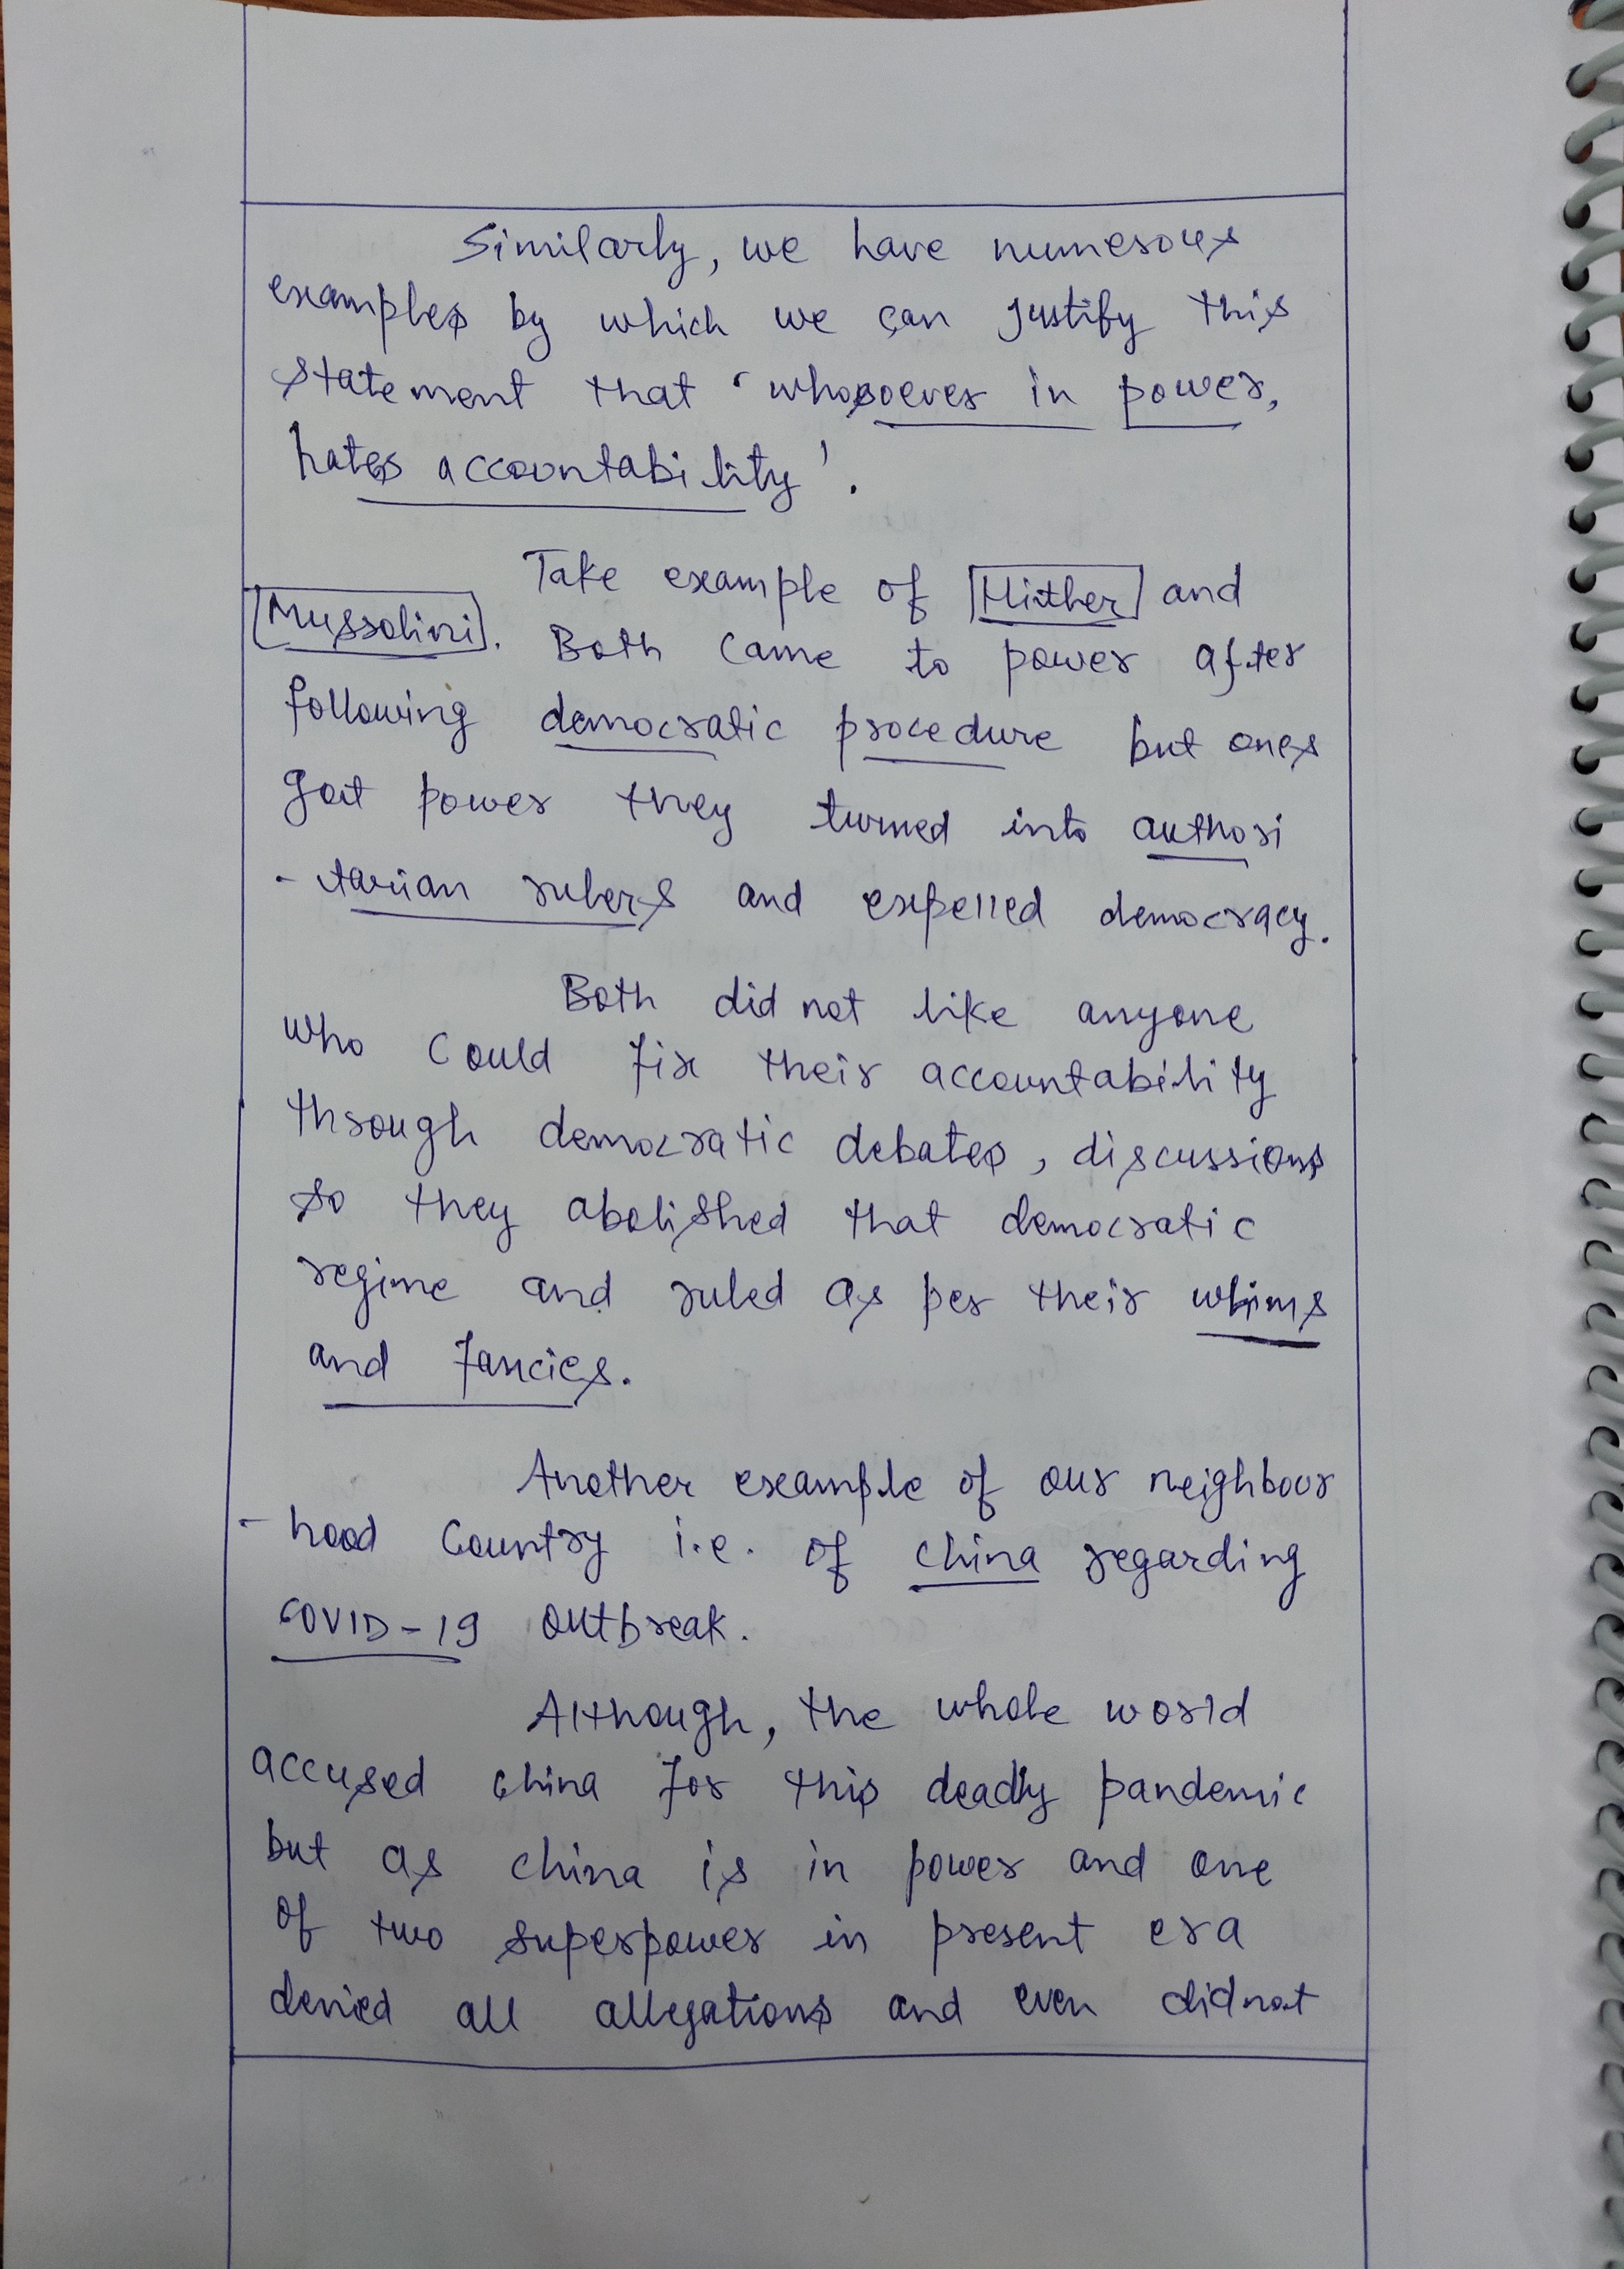 Similarly, we have numerous
examples by which we can justify this
statement that 'whosoever in power,
hates accountability'.
Take example of Hither and
Mussolini. Both came to power after
following democratic procedure but ones
got power they turned into authori
- tarian rulers and expelled democracy.
Both did not like anyone
who could fix their accountability
through democratic debates, discussions
so they abolished that democratic
regime and ruled as per their whims
and fancies.
Another example of our neighbour
- hood country i.e. of china regarding
COVID-19 outbreak.
Although, the whole world
accused china for this deadly pandemic
but as china is in power and one
of two superpower in present era
denied all allegations and even didnot